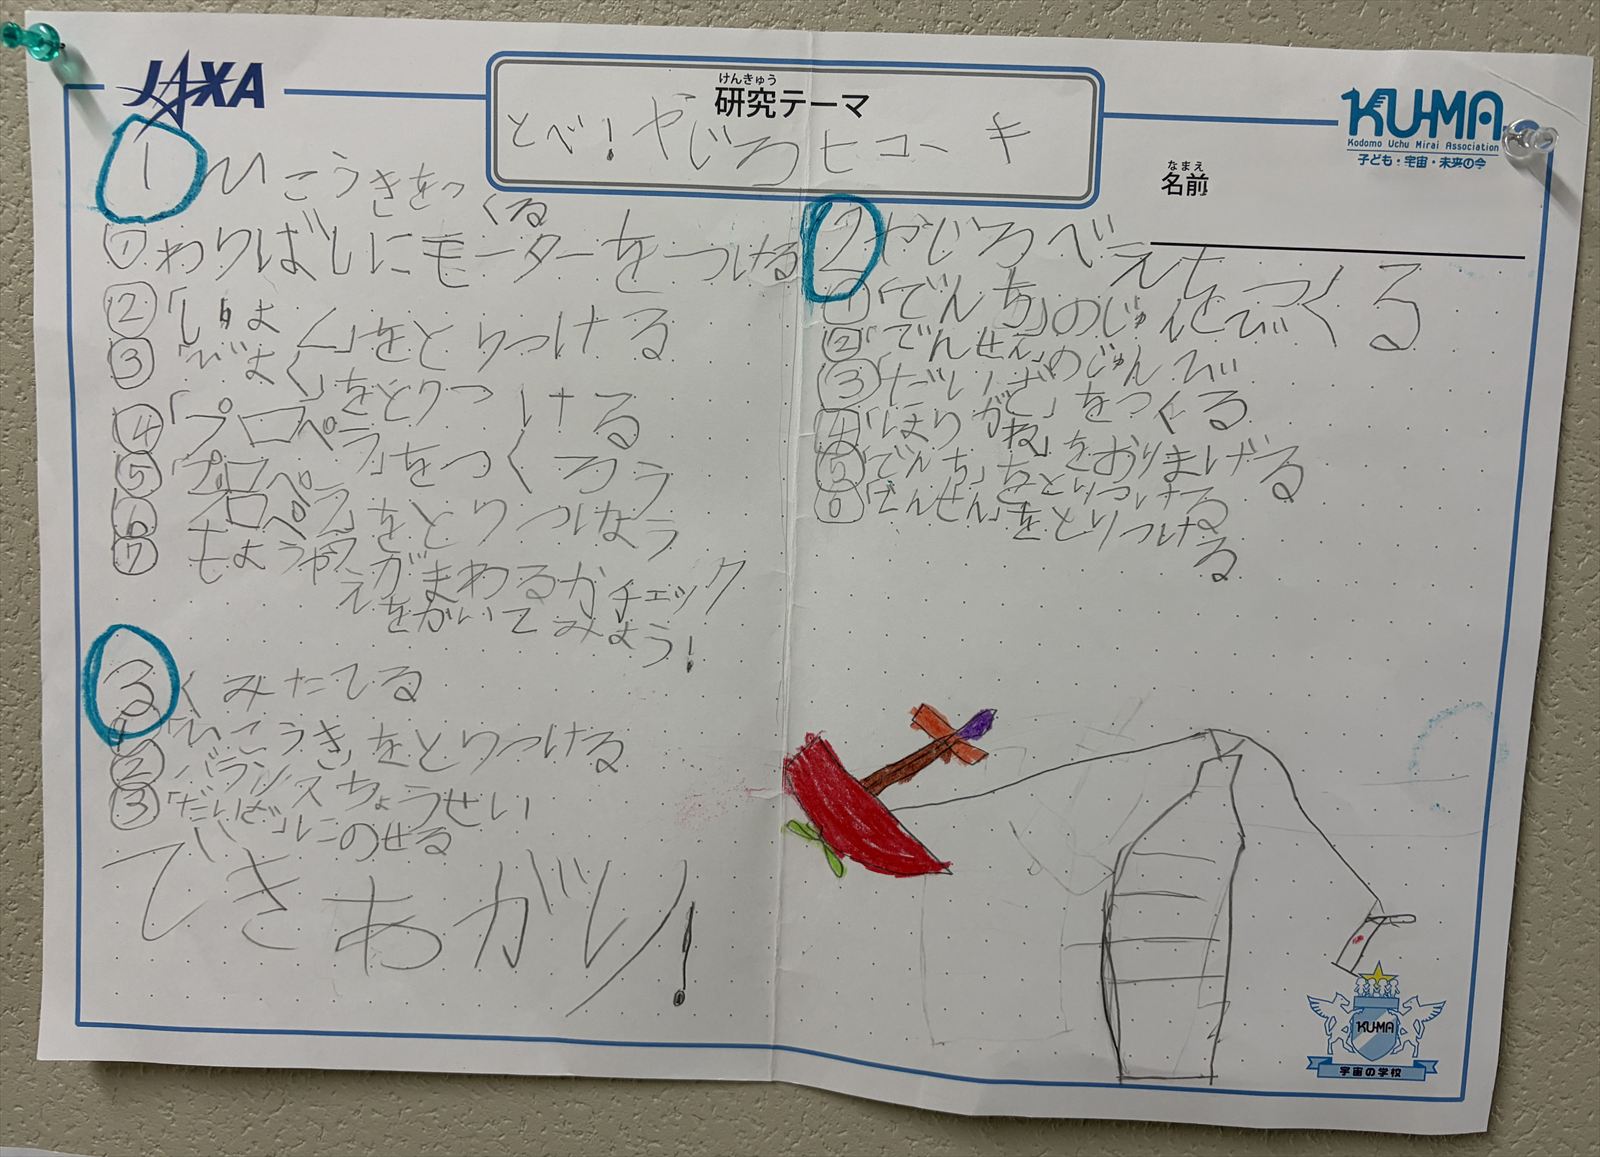 JAXA
けんきゅう
研究テーマ
とべ!やじろヒコーキ
KU-MA
Kodomo Uchu Mirai Association
子ども・宇宙・未来の会
なまえ
名前
1 ひこうきをつ
くる
①わりばしにモーターをつける
②「しゅよく」をとりつける
③「びよく」をとりつける
④「プロペラ」をつくろう
⑤「プロペラ」をとりつけよう
⑥プロペラ
もようや
⑦えがまわるかチェック
えをかいてみよう!
2 やじろべえをつくる
①「でんち」のじゅんび
②「でんせん」のじゅんび
③「だいざ」をつくる
④「はりがね」をおりまげる
⑤「でんち」をとりつける
⑥「でんせん」をとりつけ
る
3 くみたてる
①「ひこうき」をとりつける
②バランスちょうせい
③「だいざ」にのせる
できあがり!
KU-MA
宇宙の学校